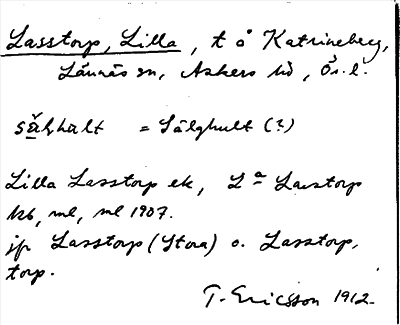 Lasstorp, Lilla, t å Katrineberg,
Lännäs sn, Askers hd, Ör. l.
sä̆l̥hult = Sälghult (?)
Lilla Lasstorp ek, La Lasstorp
hb, ml, ml 1907.
jfr Lasstorp (Stora) o. Lasstorp,
torp.
T. Ericsson 1912.